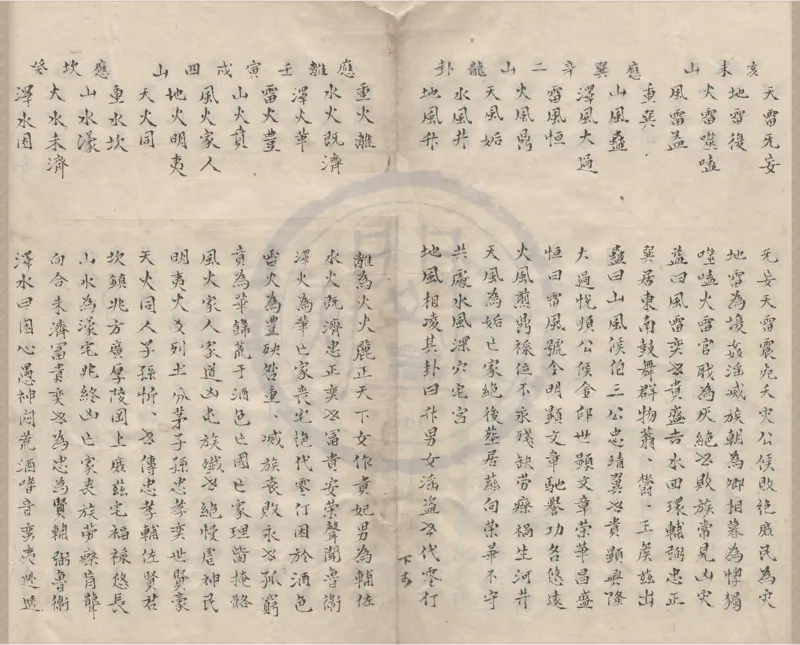 亥未山
應巽辛二山龍卦
應離壬寅戌四山
應坎癸
天雷无妄
地雷復
火雷噬嗑
風雷益
重巽
山風蠱
澤風大過
雷風恒
火風鼎
天風姤
水風井
地風升
重火離
水火既濟
澤火革
雷火豐
山火賁
風火家人
地火明夷
天火同
重水坎
山水濛
火水未濟
澤水困
无妄天雷震死夭灾公侯敗絕庶民為灾
地雷為復姦淫滅族朝為卿相暮為惸獨
噬嗑火雷官戰為灰絕世敗族常見山灾
益曰風雷奕世貴盛吉水回環輔弼忠正
巽居東南鼓舞群物蓊、欝、王侯茲出
蠱曰山風侯伯三公忠靖冀世貴顯興隆
大過悅順公侯金卿世顯文章榮華昌盛
恒曰雷風號令明顯文章馳譽功名悠遠
火風煎鼎祿位不永殘缺勞瘵禍生河井
天風為姤亡家絕後墓居茲向榮華不守
共處水風深穴宅宮
地風相凌其卦曰升男女淫盜世代零仃
離為火火麗正天下女作貴妃男為輔佐
水火既濟忠正世冨貴安榮聲聞魯衛
澤火為革亡家喪宅絕代零仃困於酒色
雷火為豐殃咎重、滅族衰敗永世孤窮
賁為華錦荒于酒色亡國亡家理皆掩路
風火家人家道凶屯族殲世絕慢虐神民
明夷火世列土分茅子孫忠孝奕世賢豪
天火同人子孫忻、世傳忠孝輔佐賢君
坎鎮兆方廣厚陵岡上廣茲宅福祿悠長
山水為濛宅兆終凶亡家喪族勞瘵盲聾
向合未濟冨貴奕世為忠為賢輔弼魯衛
澤水曰困心愚神悶荒酒嗜音蛮夷㐫遁